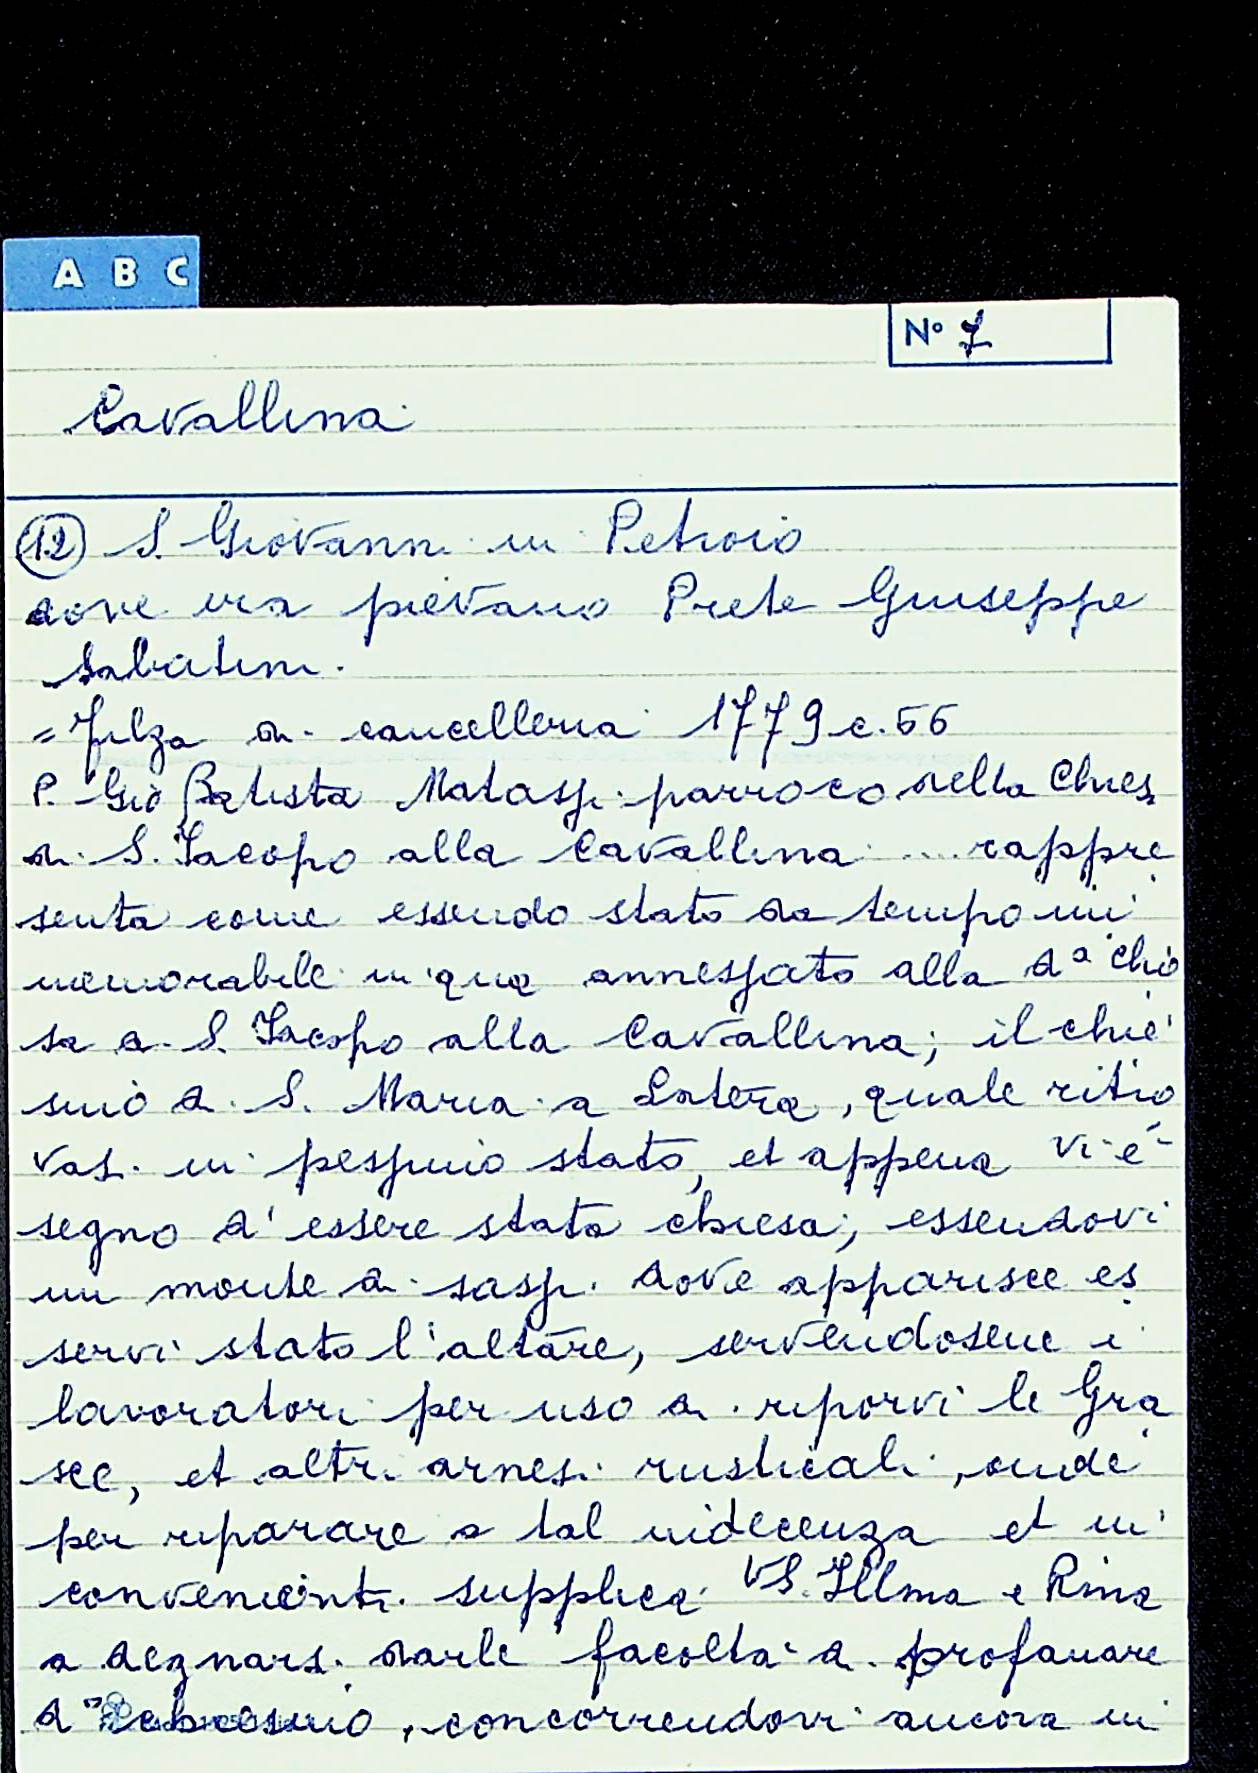 A B C
N° 7
Cavallina
(12) S. Giovanni in Petroio
dove era pievano Prete Giuseppe
Sabatini.
= Filza di cancelleria 1779 c. 56
P. Gio Batista Matassi parroco della Chies
di S. Iacopo alla Cavallina .... rappre
senta come essendo stato da tempo im
memorabile in qua annessato alla d.ª chie
sa di S. Iacopo alla Cavallina; il chie
sino di S. Maria a Latera, quale ritro
vasi in pessimo stato, et appena vi è
segno d'essere stata chiesa, essendovi
un monte di sassi dove apparisce es
servi stato l'altare, servendosene i
lavoratori per uso di riporvi le Gra
sce, et altri arnesi rusticali, onde
per riparare a tal indecenza et in
convenienti supplica VS. Illma e Rma
a degnarsi darle facoltà di profanare
d.º chiesino, concorrendovi ancora in